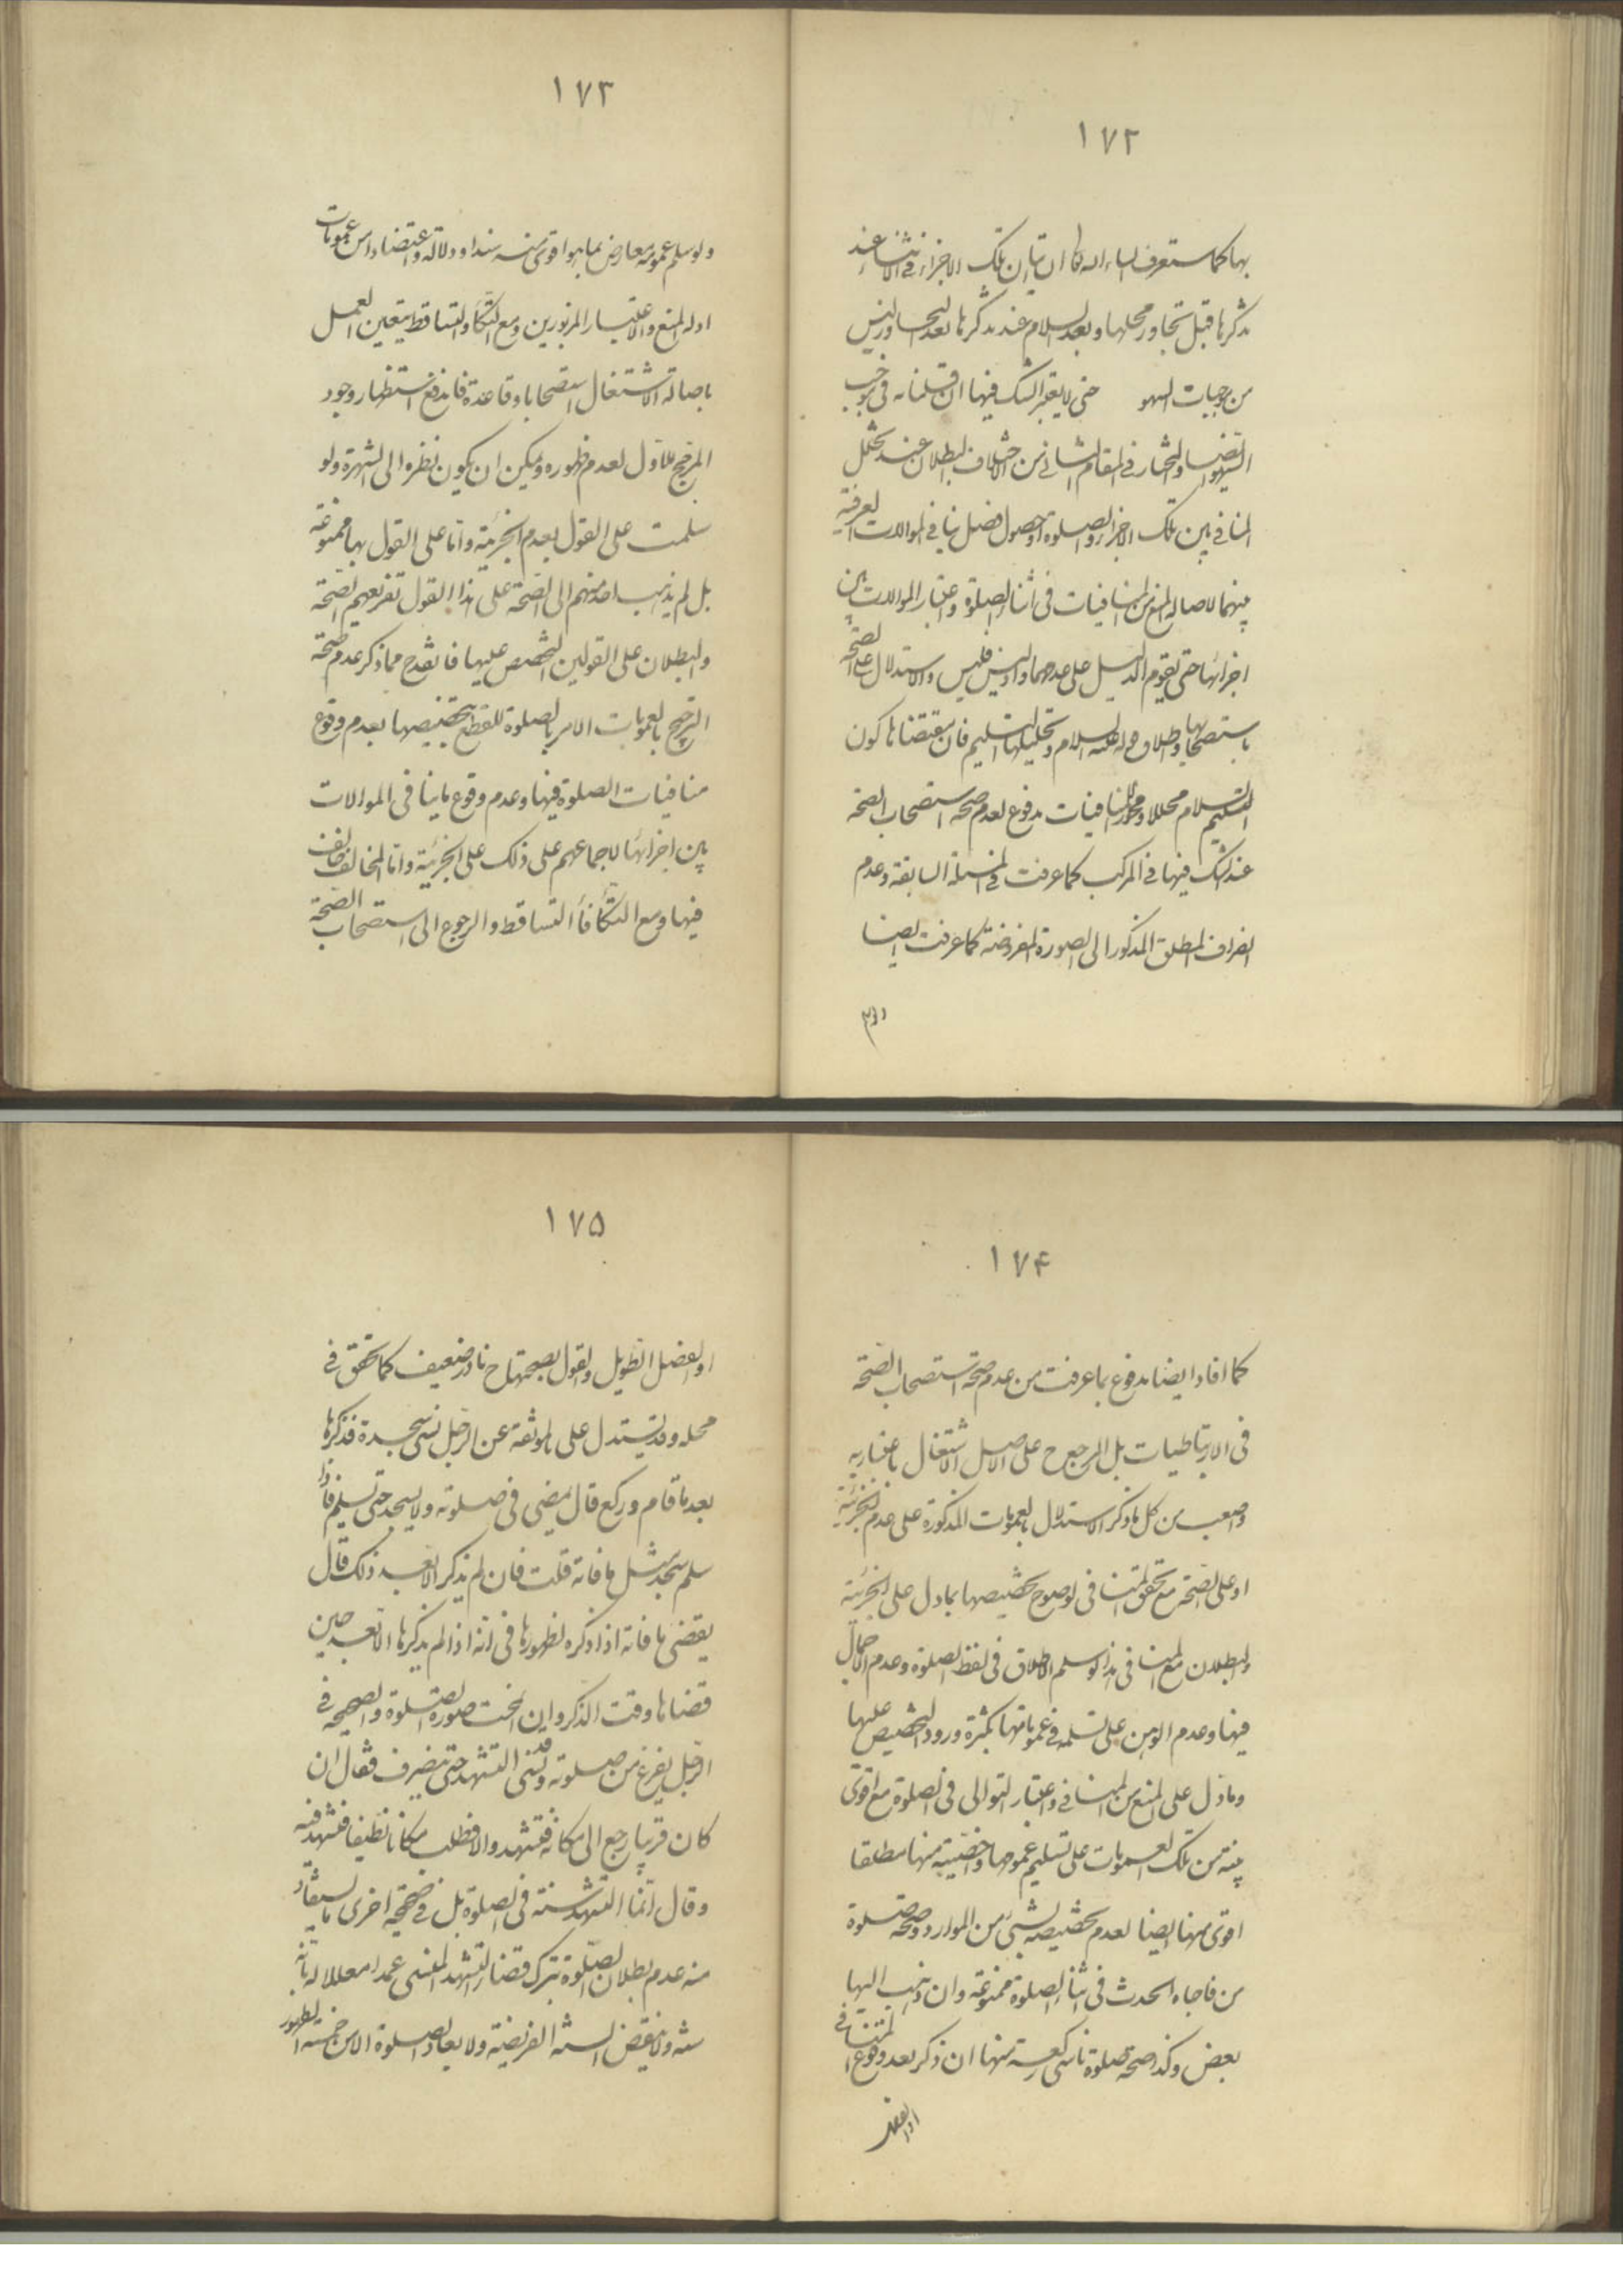 ١٧٢
بها كما ستعرف ان تلك الاجزاء فى الاثناء عند
تذكرها قبل تجاوز محلها وبعد السلام عند تذكرها بعد التجاوز ليس
من موجبات السهو حتى لا يعتبر الشك فيها ان قلنا به فى موجب
السهو والمختار فى المقام الثانى من الاختلاف البطلان عند تخلل
المنافى بين تلك الاجزاء والصلوة او حصول فصل ينافى الموالات العرفية
بينهما لاصالة المنع من المنافيات فى اثناء الصلوة واعتبار الموالات بين
اجزائها حتى يقوم الدليل على عدمهما واذ ليس فليس والاستدلال على الصحة
باستصحابها واطلاق قوله عليه السلام وتحليلها التسليم فان مقتضاها كون
التسليم محللا للمنافيات مدفوع لعدم صحة استصحاب الصحة
عند الشك فيها فى المركب كما عرفت فى المسئلة السابقة وعدم
انصراف المطلق المذكور الى الصورة المفروضة كما عرفت ايضا
١٧٣
ولو سلم عمومه معارض بما هو اقوى منه سندا ودلالة واعتضادا من عمومات
ادلة المنع والاعتبار المزبورين ومع التكافؤ والتساقط يتعين العمل
باصالة الاشتغال استصحابا وقاعدة فاندفع استظهار وجود
المرجح للاول لعدم ظهوره ويمكن ان يكون نظره الى الشهرة ولو
سلمت على القول بعدم الجزئية واما على القول بها ممنوعة
بل لم يذهب احد منهم الى الصحة على هذا القول تفريعهم الصحة
والبطلان على القولين عليها فانقدح مما ذكر عدم صحة
الترجيح بالعمومات الامر بالصلوة للقطع بتخصيصها بعدم وقوع
منافيات الصلوة فيها وعدم وقوع ما ينافى الموالات
بين اجزائها لاجماعهم على ذلك على الجزئية واما المخالف فخالف
فيها ومع التكافأ التساقط والرجوع الى استصحاب الصحة
١٧۴
كما افاد ايضا مدفوع بما عرفت من عدم صحة استصحاب الصحة
فى الارتباطيات بل المرجع ح على الاصل الاشتغال باعتباريه
واصعب من كل ما ذكر الاستدلال بالعمومات المذكورة على عدم الجزئية
او على الصحة مع تحقق المنافى لوضوح تخصيصها بما دل على الجزئية
والبطلان مع المنافى هذا لو سلم الاطلاق فى لفظ الصلوة وعدم الاجمال
فيها وعدم الوهن على تسلمه فى عموماتها بكثرة ورود التخصيص عليها
وما دل على المنع من المنافى واعتبار التوالى فى الصلوة مع اقوى
بينة من تلك العمومات على تسليم عمومها واخصيته منها مطلقا
اقوى منها ايضا لعدم تخصيصه بشىء من الموارد وصحة صلوة
من فاجاه الحدث فى اثناء الصلوة ممنوعة وان ذهب اليها
بعض وكذا صحة صلوة ناسى ركعة منها ان ذكر بعد وقوع المنافى
او الفصل
١٧۵
او الفصل الطويل والقول بصحتها ح نادر ضعيف كما تحقق فى
محله وقد يستدل على بالموثقة عن الرجل نسى سجدة فذكرها
بعد ما قام وركع قال يمضى فى صلوته ولا يسجد حتى تسليم فاذا
سلم سجد مثل ما فاته قلت فان لم يذكر الا بعد ذلك قال
يقضى ما فاته اذا ذكره لظهورها فى انه اذا لم يذكرها الا بعد حين
قضاها وقت الذكر وان انمحت صورة الصلوة والصحيح فى
الرجل يفرغ من صلوته وقد نسى التشهد حتى ينصرف فقال ان
كان قريبا رجع الى مكانه فتشهد والا فطلب مكانا نظيفا فتشهد فيه
وقال انما التشهد سنة فى الصلوة بل فى صحيحة اخرى ما يستفاد
منه عدم بطلان الصلوة بترك قضاء التشهد المنسى عمدا معللا له بانه
سنة ولا ينقض السنة الفريضة ولا يعاد الصلوة الا من خمسة الطهور